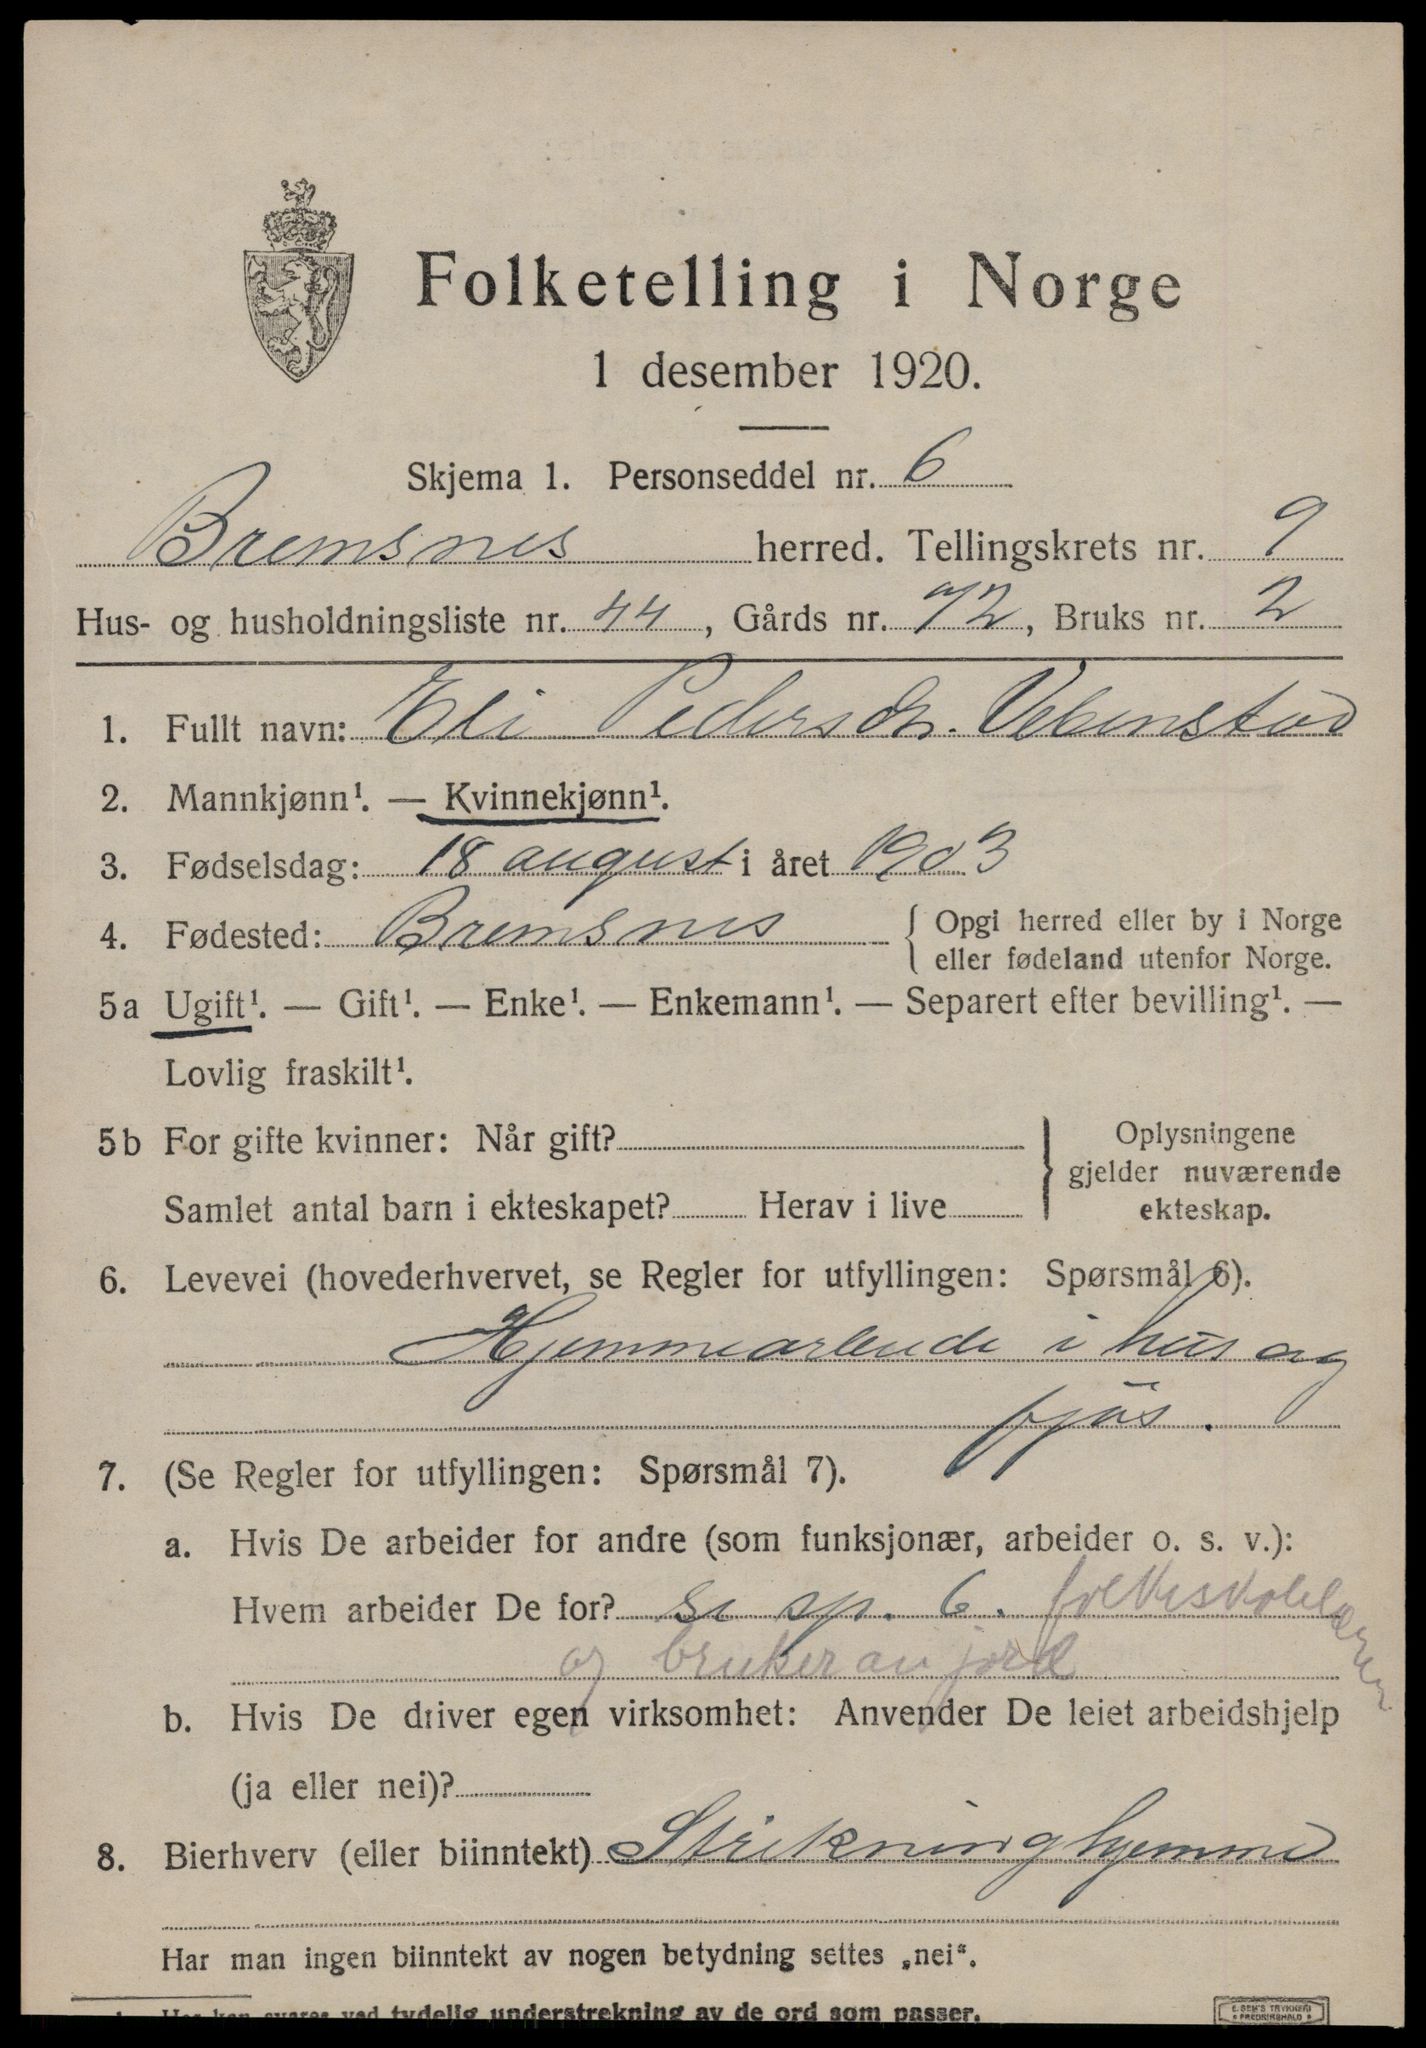 Folketelling i Norge
1 desember 1920.
Skjema 1. Personseddel nr. 6
Bremsnes herred. Tellingskrets nr. 9
Hus- og husholdningsliste nr. 44, Gårds nr. 72, Bruks nr. 2
1. Fullt navn: Eli Pedersdtr. Vebenstad
2. Mannkjønn¹. — Kvinnekjønn¹.
3. Fødselsdag: 18 august i året 1903
4. Fødested: Bremsnes { Opgi herred eller by i Norge
eller fødeland utenfor Norge.
5a Ugift¹. — Gift¹. — Enke¹. — Enkemann¹. — Separert efter bevilling¹. —
Lovlig fraskilt¹.
5b For gifte kvinner: Når gift?
Samlet antal barn i ekteskapet? Herav i live
} Oplysningene
gjelder nuværende
ekteskap.
6. Levevei (hovederhvervet, se Regler for utfyllingen: Spørsmål 6).
Hjemmearbeide i hus og
fjøs.
7. (Se Regler for utfyllingen: Spørsmål 7).
a. Hvis De arbeider for andre (som funksjonær, arbeider o. s. v.):
Hvem arbeider De for? se sp. 6. folkeskolelærer
og bruker av jord
b. Hvis De driver egen virksomhet: Anvender De leiet arbeidshjelp
(ja eller nei)?
8. Bierhverv (eller biinntekt) Strikning hjemme
Har man ingen biinntekt av nogen betydning settes „nei“.
¹ Her kan svares ved tydelig understrekning av de ord som passer.
E. SEM'S TRYKKERI
FREDRIKSHALD